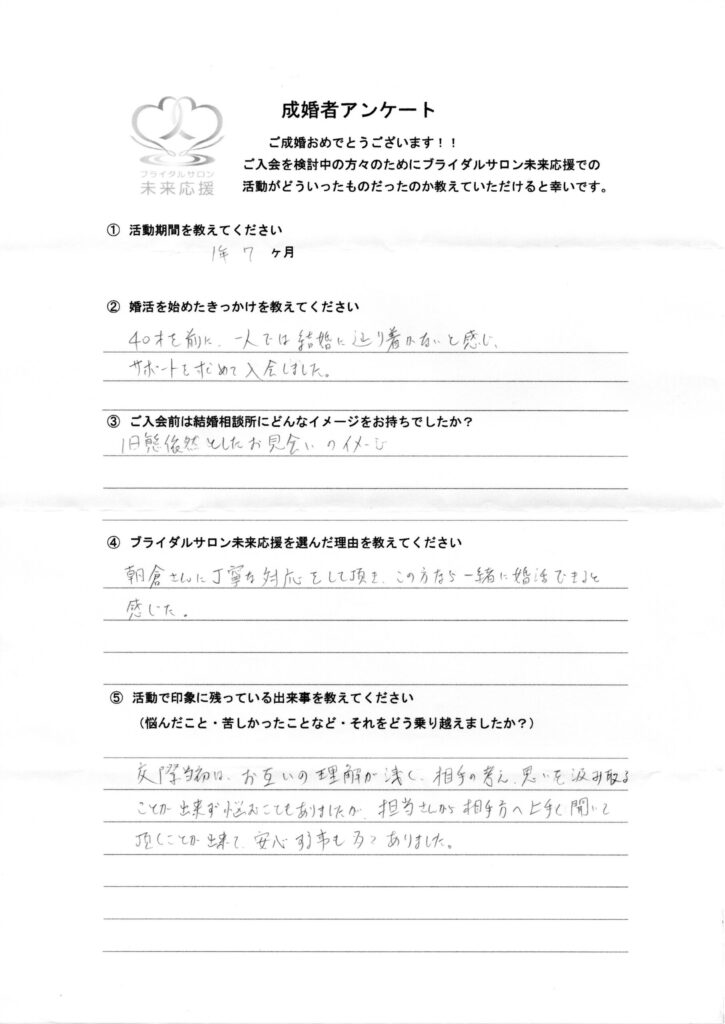 成婚者アンケート
ブライダルサロン
未来応援
ご成婚おめでとうございます！！
ご入会を検討中の方々のためにブライダルサロン未来応援での
活動がどういったものだったのか教えていただけると幸いです。
① 活動期間を教えてください
1年 7 ヶ月
② 婚活を始めたきっかけを教えてください
40才を前に、一人では結婚に辿り着かないと感じ、
サポートを求めて入会しました。
③ ご入会前は結婚相談所にどんなイメージをお持ちでしたか？
旧態依然としたお見合いのイメージ
④ ブライダルサロン未来応援を選んだ理由を教えてください
朝倉さんに丁寧な対応をして頂き、この方なら一緒に婚活できると
感じた。
⑤ 活動で印象に残っている出来事を教えてください
（悩んだこと・苦しかったことなど・それをどう乗り越えましたか？）
交際当初は、お互いの理解が浅く、相手の考え、思いを汲み取る
ことが出来ず悩むこともありましたが、担当さんから相手方へ上手く聞いて
頂くことが出来て、安心する事も多々ありました。